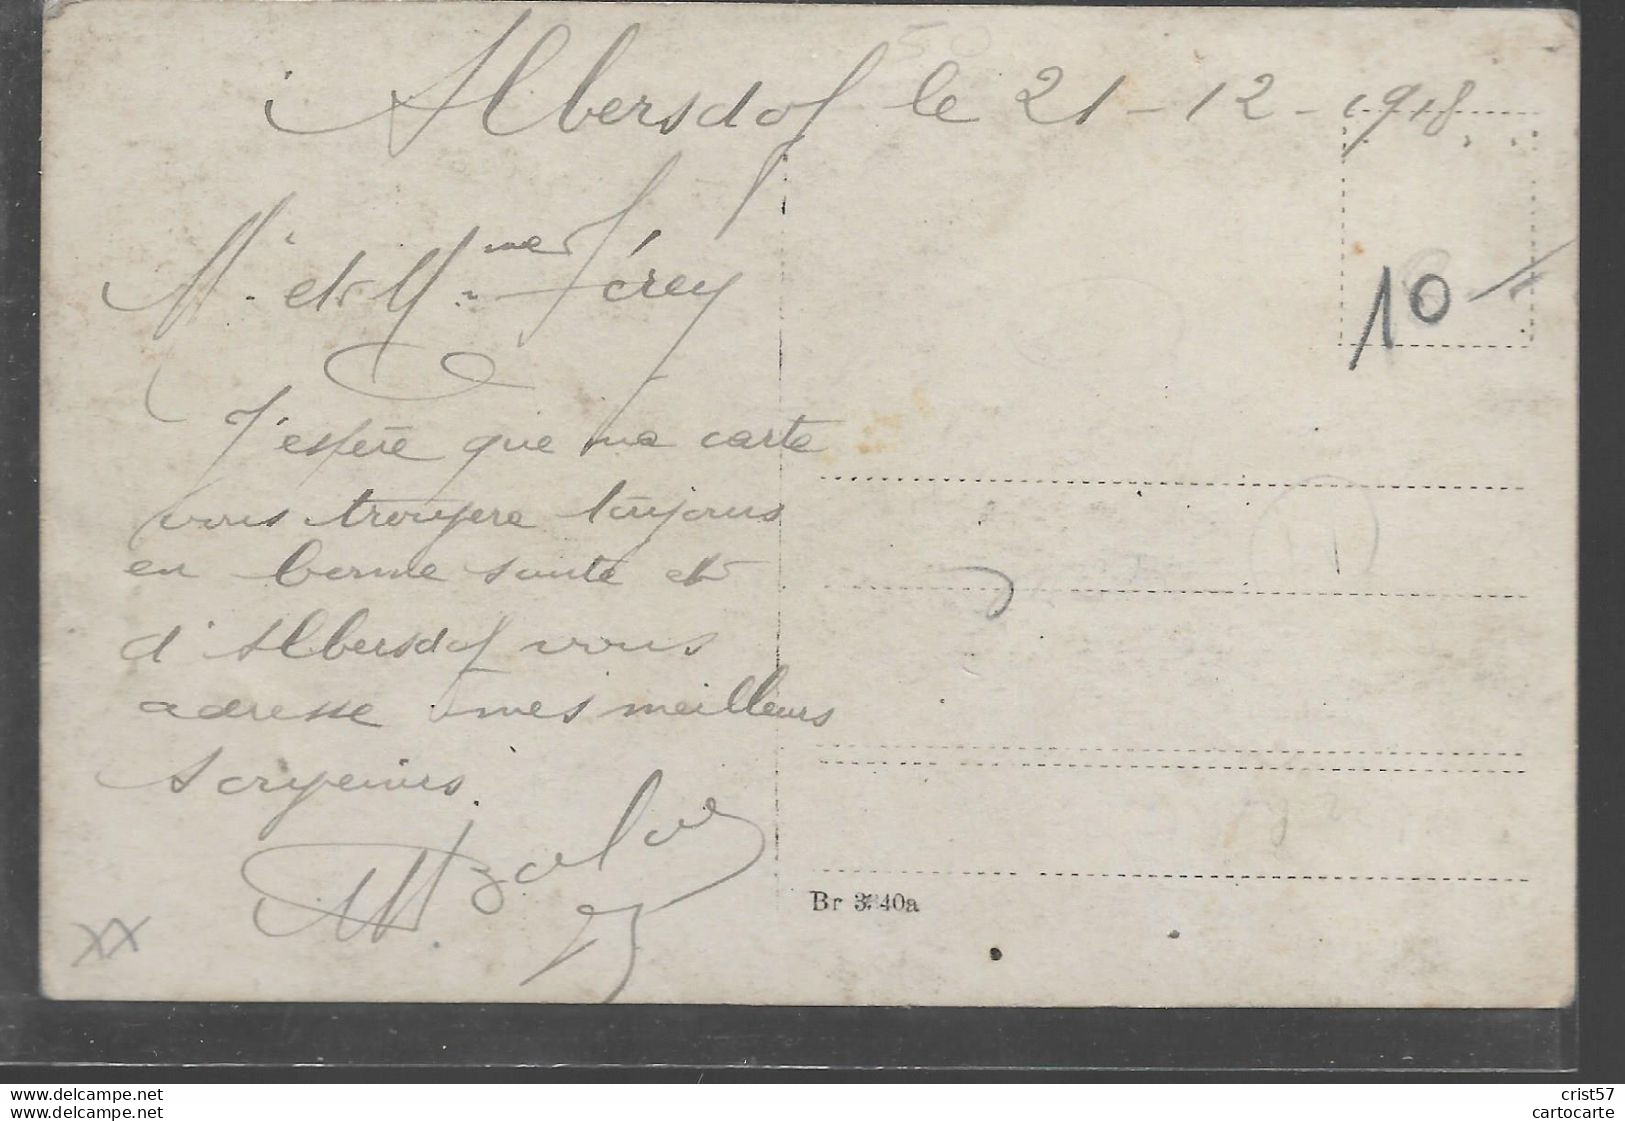 Albersdof le 21-12-1918
Mr et Mme Férey
J'espère que ma carte
vous trouvera toujours
en bonne santé et
d'Albersdof vous
adresse mes meilleurs
souvenirs.
10-
Br 3240a
XX
cartecarte
delcampe.net
cartecarte
delcampe.net
crist57
cartocarte